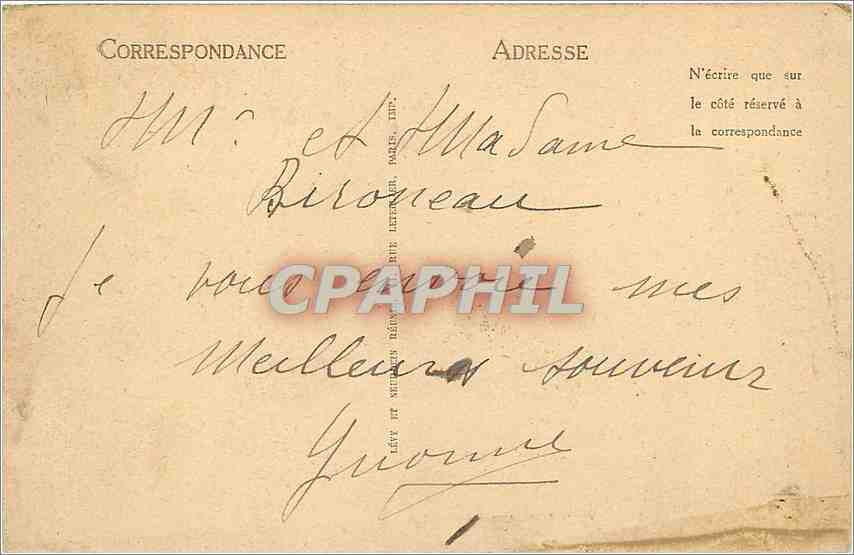 CORRESPONDANCE
ADRESSE
N'écrire que sur
le côté réservé à
la correspondance
Mr et Madame
Bironeau
Je vous envoie mes
meilleurs souvenirs
Yvonne
CPAPHIL
LÉVY ET NEURDEIN RÉUNIS, RUE LETELLIER, PARIS. IMP.